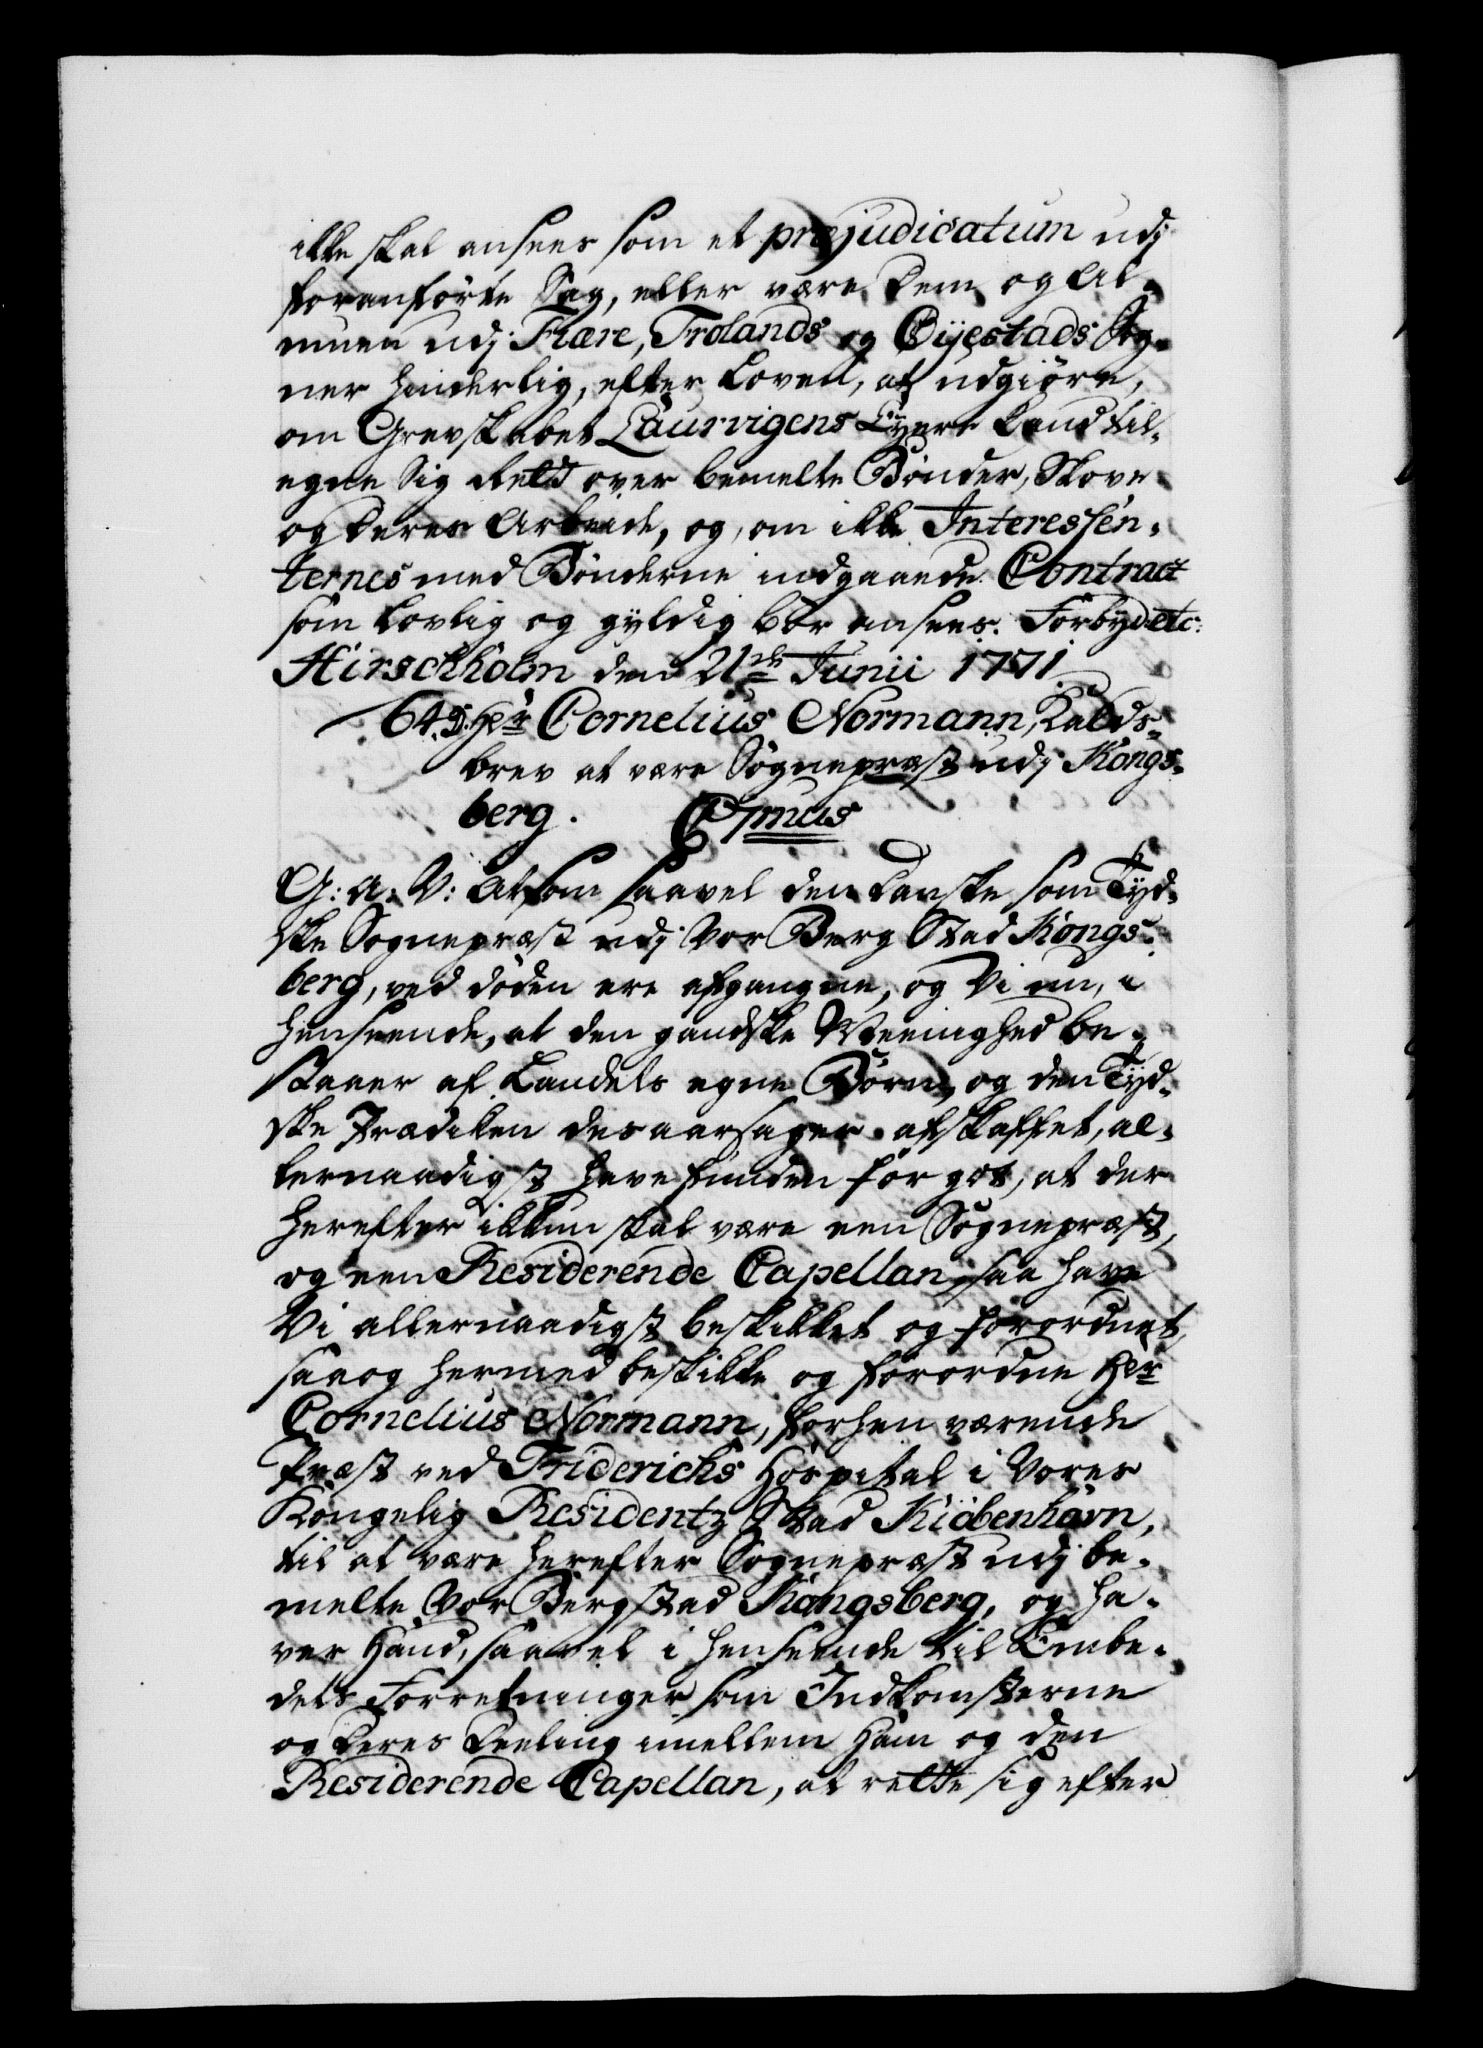 ikke skal ansees som et præjudicatum udj
foranførte Sag, eller være Dem og Al-
muen udj Fiære, Trolands og Øijestads Sog-
ner hinderlig, efter Loven, at udgiøre,
om Grevskabet Laurvigens Eyere kand til-
egne sig Rett over bemelte Bønder, Skove
og deres Arbeide, og, om ikke Interessen-
ternes med Bønderne indgaaede Contract
som lovlig og gyldig bør ansees. Forbyd etc:
Hirschholm den 21de Junii 1771
649. Hr Cornelius Normann, Kalds-
brev at være Sognepræst udj Kongs-
berg.
G: A: V: Atsom saavel den Danske som Tyd-
ske Sognepræst udj Vor Berg Stad Kongs-
berg, ved døden ere afgangne, og Vi nu, i
henseende, at den gandske Meenighed be-
staaer af Landets egne Børn, og den Tyd-
ske Prædiken desaarsager afskaffet, al-
lernaadigst have funden for got, at der
herefter ikkun skal være een Sognepræst,
og een Residerende Capellan, saa have
Vi allernaadigst beskikket og forordnet,
saa og hermed beskikke og forordne Hr
Cornelius Normann, forhen værende
Præst ved Friderichs Hospital i Vores
Kongelig Residentz Stad Kiøbenhavn,
til at være herefter Sognepræst udj be-
melte Vor Bergstad Kongsberg, og ha-
ver Hand, saavel i henseende til Embe-
dets Forretninger som Indkomsterne
og deres Deeling imellem Ham og den
Residerende Capellan, at rette sig efter